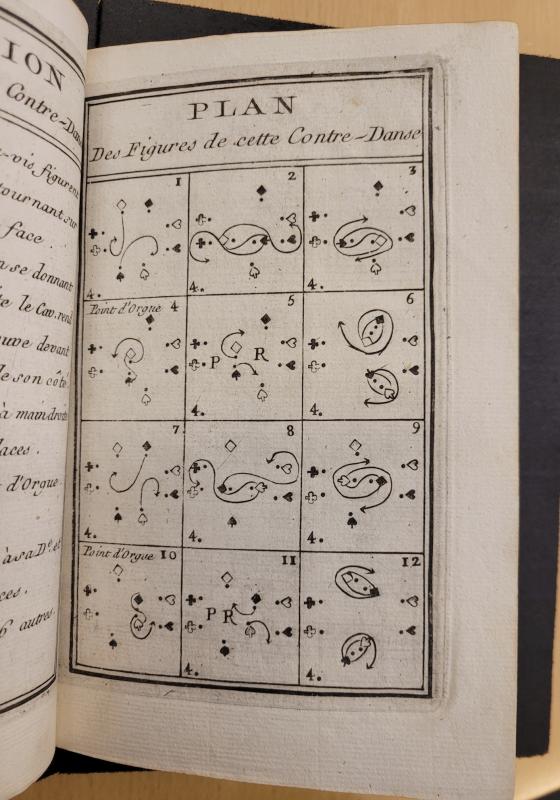 ION
Contre-Dan
-vis figurent
tournant sur
face.
n se donnant
te le Cav. rend
uve devant
de son côté
à main droite
laces.
t d'Orgue
à sa De. et
ces.
6 autres.
PLAN
Des Figures de cette Contre-Danse
1
2
3
4.
Point d'Orgue 4
5
6
P R
4.
4.
7
8
9
4.
Point d'Orgue 10
11
12
P R
4.
4.